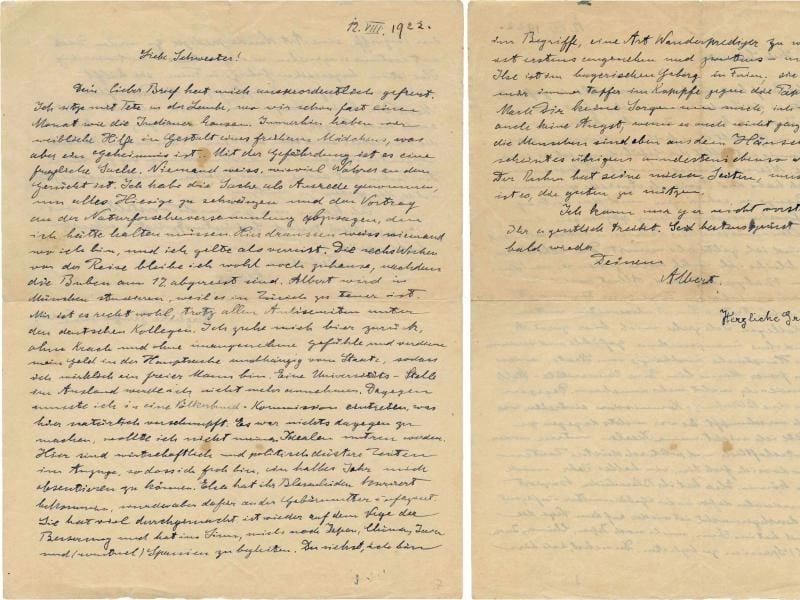 12. VIII. 1922.
Liebe Schwester!
Dein lieber Brief hat mich ausserordentlich gefreut.
Ich sitze mit Tete in der Laube, wo wir schon fast einen
Monat wie die Indianer hausen. Immerhin haben wir
weibliche Hilfe in Gestalt eines früheren Mädchens, was
aber ein Geheimnis ist. Mit der Gefährdung ist es eine
fragliche Sache. Niemand weiss, wieviel Wahres an dem
Gerücht ist. Ich habe die Sache als Ausrede genommen,
um alles Hiesige zu schwänzen und den Vortrag
an der Naturforscherversammlung abzusagen, den
ich hätte halten müssen. Hier draussen weiss niemand
wo ich bin, und ich gelte als verreist. Die sechs Wochen
vor der Reise bleibe ich wohl noch zuhause, nachdem
die Buben am 17. abgereist sind. Albert wird in
München studieren, weil es in Zürich zu teuer ist.
Mir ist es recht wohl, trotz allen Antisemiten unter
den deutschen Kollegen. Ich ziehe mich hier zurück,
ohne Krach und ohne unangenehme Gefühle und verdiene
mein Geld in der Hauptsache unabhängig vom Staate, sodass
ich wirklich ein freier Mann bin. Eine Universitäts-Stelle
im Ausland werde ich nicht mehr annehmen. Dagegen
musste ich in eine Völkerbund-Kommission eintreten, was
hier natürlich verschnupft. Es war nichts dagegen zu
machen, wollte ich nicht meinen Idealen untreu werden.
Hier sind wirtschaftlich und politisch düstere Zeiten
im Anzuge, sodass ich froh bin, ein halbes Jahr mich
absentieren zu können. Elsa hat ihr Blasenleiden kuriert
bekommen, wurde aber dafür an der Gebärmutter infiziert.
Sie hat viel durchgemacht, ist wieder auf dem Wege der
Besserung und hat im Sinn, mich nach Japan, China, Java
und (eventuell) Spanien zu begleiten. Du siehst, ich bin
im Begriffe, eine Art Wanderprediger zu w
ist erstens angenehm und zweitens
Ilse ist im bayerischen Gebirg in Ferien, sie
immer tapfer im Kampfe gegen die
Macht Dir keine Sorgen um mich, ich
auch keine Angst, wenn es auch nicht ganz
die Menschen sind eben aus dem Häusch
scheint es übrigens mindestens ebenso
Der Ruhm hat seine miesen Seiten, mus
ist es, die guten zu nützen.
Ich kann mir gar nicht vorst
Ihr eigentlich treibt. Seid bestens grüsst
bald wieder
Deinem
Albert.
Herzliche Gr